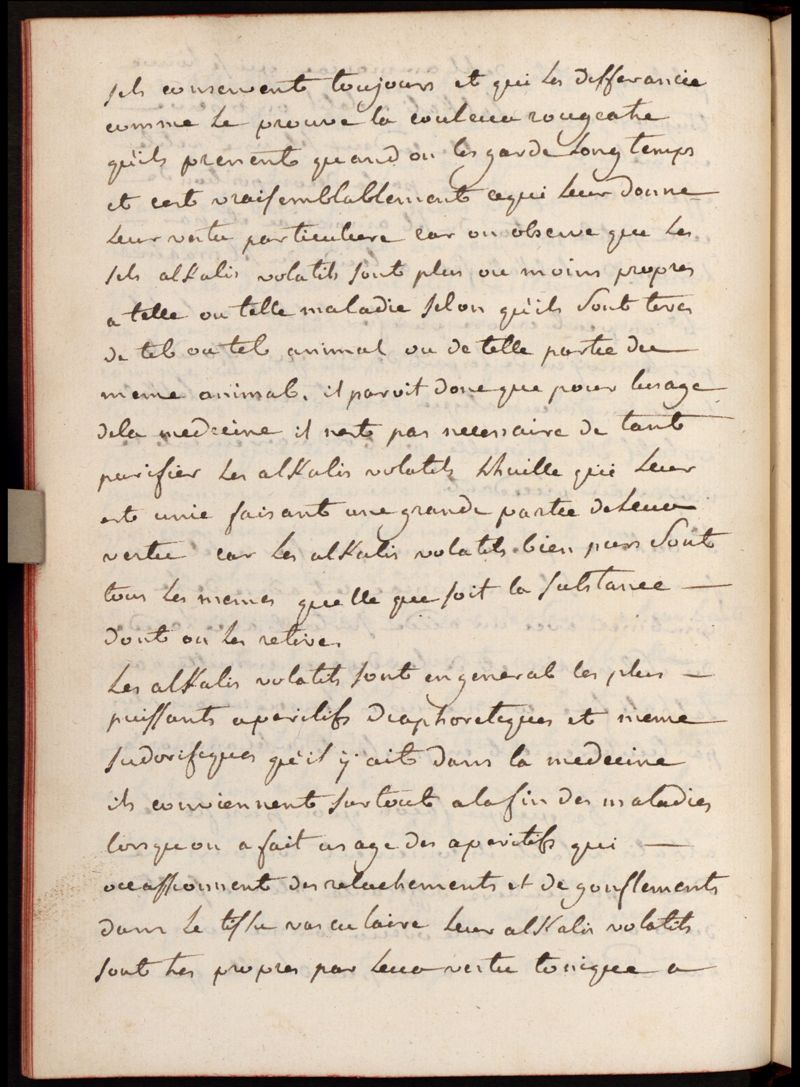 sels conservent toujours et qui les differancie
comme le prouve la couleur rougeatre
qu'ils prenent quand on les garde long temps
et c'est vraisemblablement cequi leur donne
leur vertu particuliere car on observe que les
sels alKalis volatils sont plus ou moins propres
a telle ou telle maladie selon qu'ils sont tirés
de tel ou tel animal ou de telle partie du
meme animal. il paroit donc que pour lusage
dela medecine il nest pas necessaire de tant
purifier les alKalis volatils lhuille qui leur
est unie faisant une grande partie deleur
vertu car les alKalis volatils bien purs sont
tous les memes quelle que soit la substance —
dont on les retire.
Les alKalis volatils sont en general les plus —
puissants aperitifs diaphoretiques et meme
sudorifiques qu'il y ait dans la medecine
ils conviennent surtout alafin des maladies
lorsquon a fait usage des aperitifs qui —
occassionnent des relachements et de gonflements
dans le tissu vasculaire leur alKalis volatils
sont tres propres par leur vertu tonique a